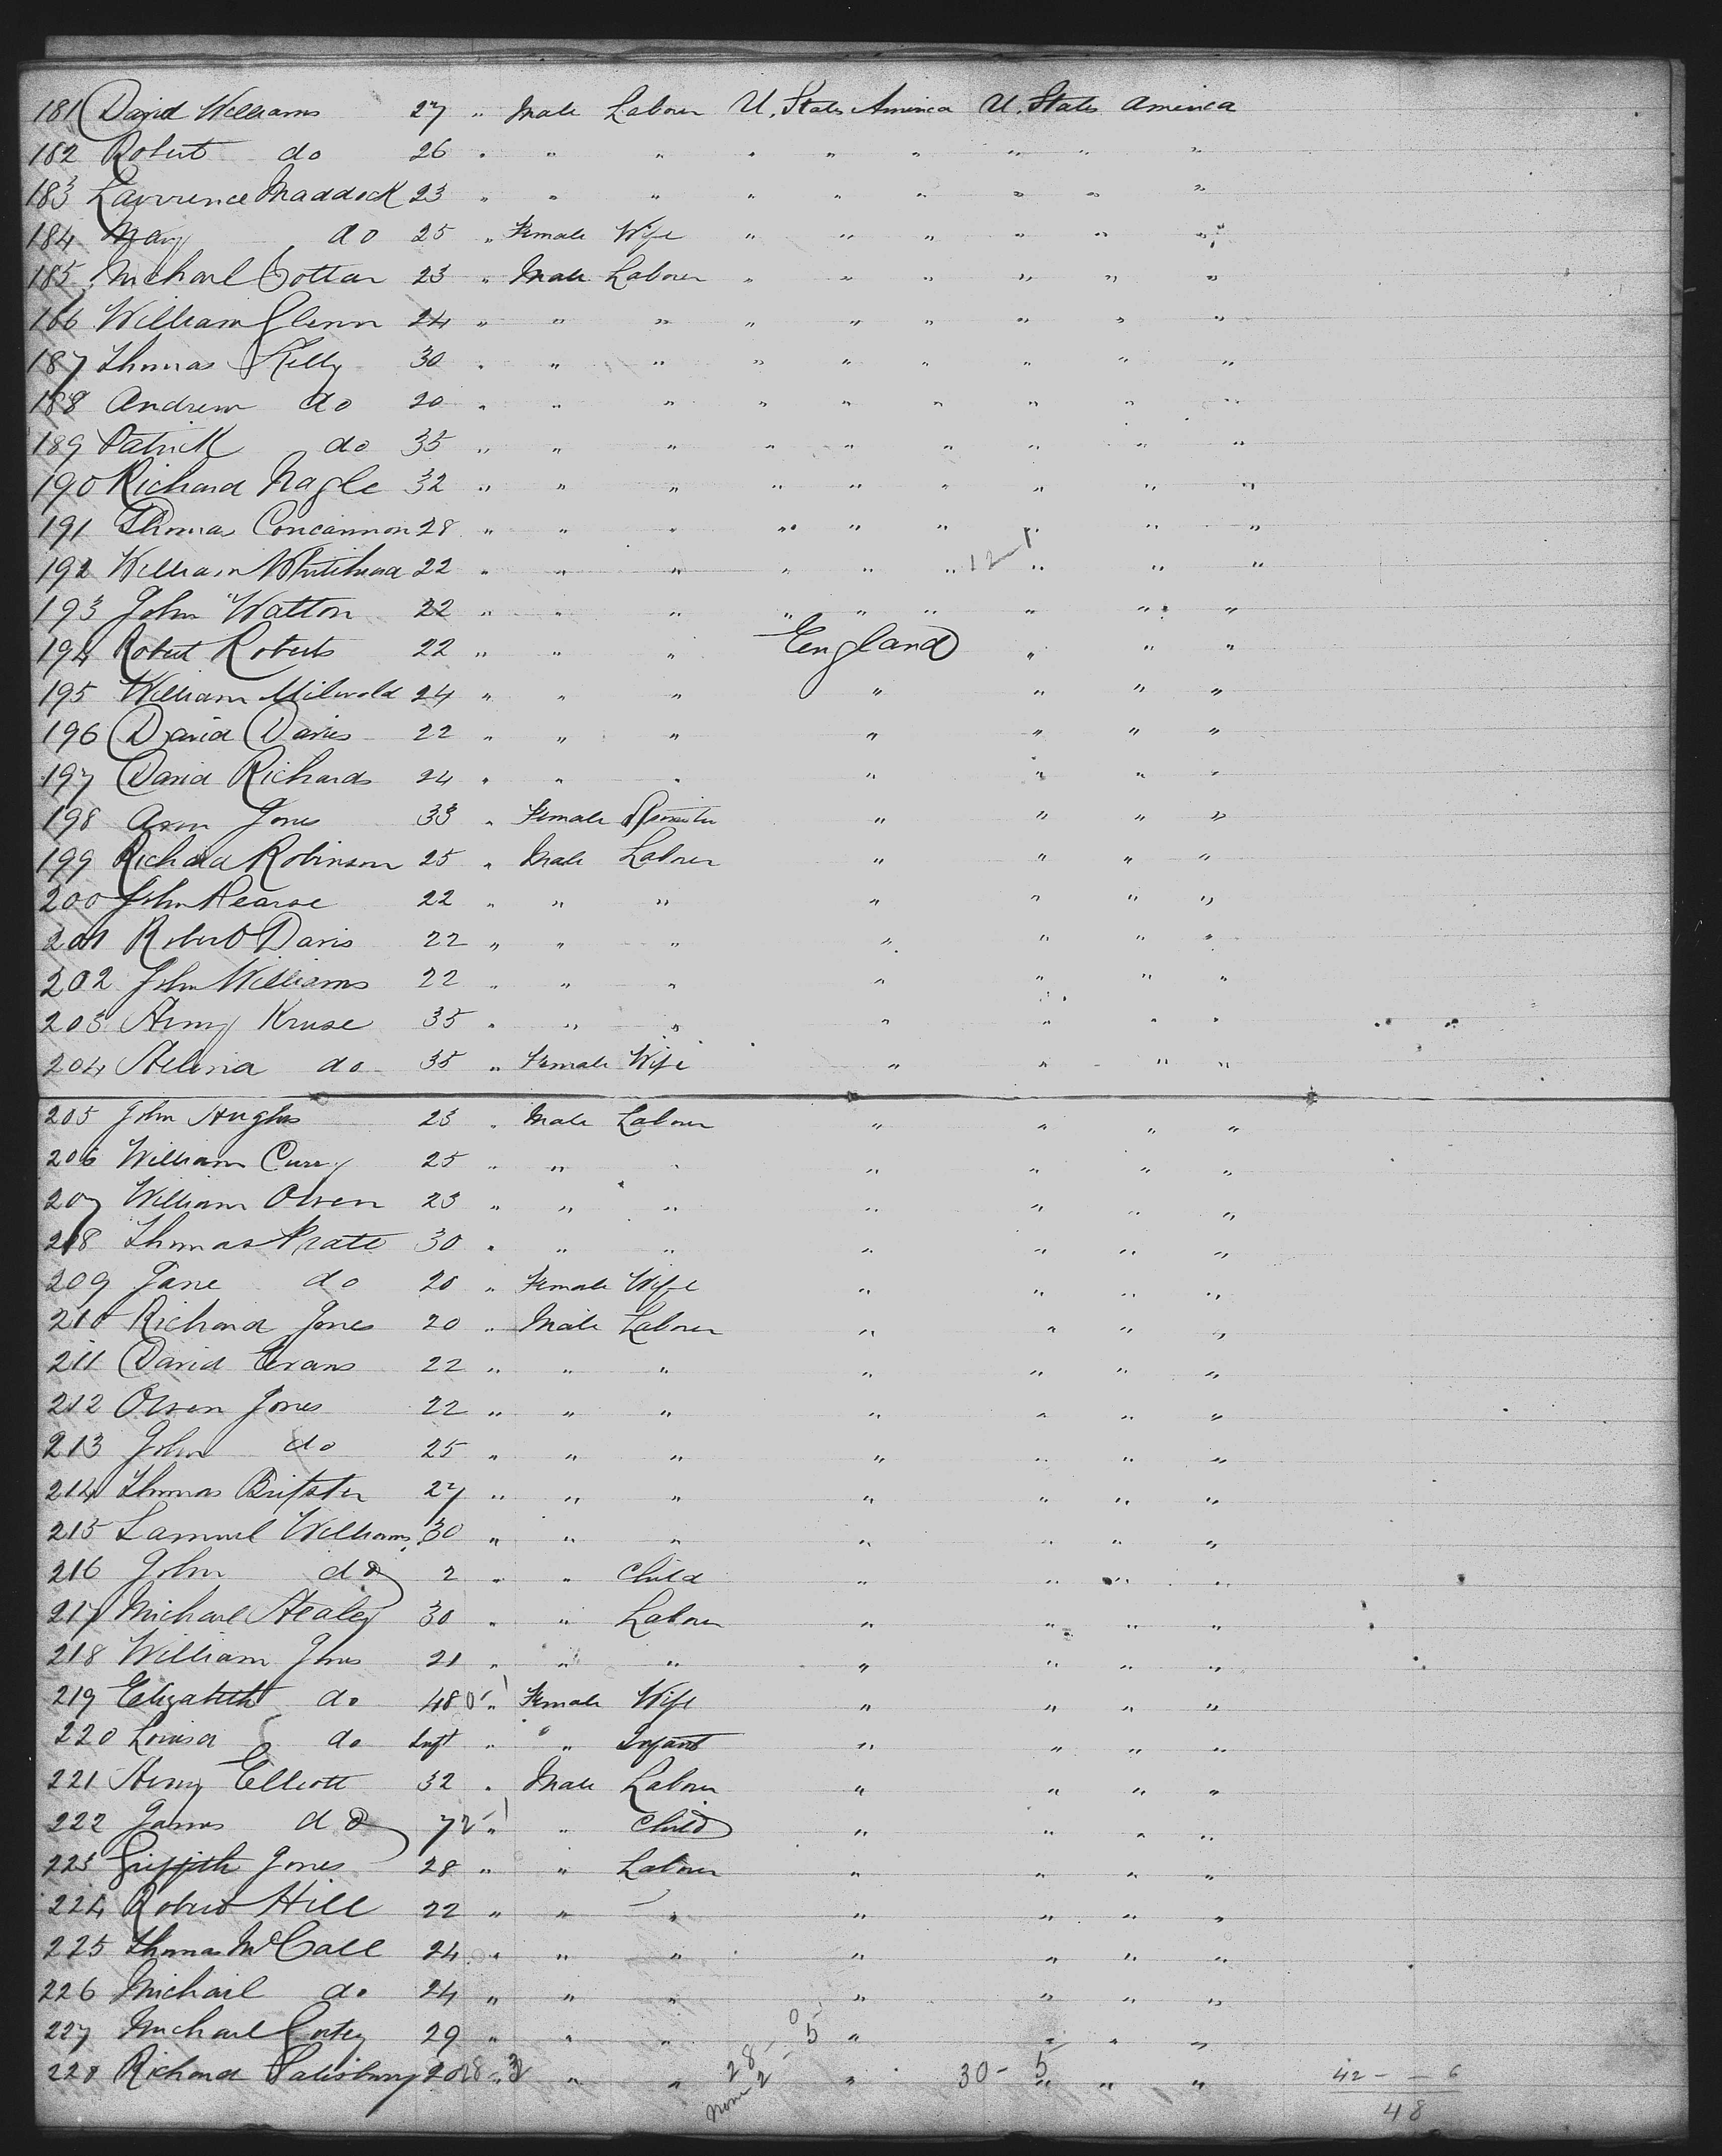 181 David Williams 27 " Male Labour U. States America U. States America
182 Robert do 26 " " " " " " " " "
183 Lawrence Maddock 23 " " " " " " " " "
184 Mary do 25 " Female Wife " " " " " "
185 Michael Cottar 23 " Male Labour " " " " " "
186 William Glenn 24 " " " " " " " " "
187 Thomas Kelly 30 " " " " " " " " "
188 Andrew do 20 " " " " " " " " "
189 Patrick do 35 " " " " " " " " "
190 Richard Nagle 32 " " " " " " " " "
191 Thomas Concannon 28 " " " " " " " " "
192 William Whitehead 22 " " " " " " " " "
193 John Watton 22 " " " " " " " " "
194 Robert Roberts 22 " " " England " " "
195 William 24 " " " " " " "
196 David Davies 22 " " " " " " "
197 David Richards 24 " " " " " " "
198 Ann Jones 33 " Female " " " "
199 Richard Robinson 25 " Male Labour " " " "
200 John Pearse 22 " " " " " " "
201 Robert Davis 22 " " " " " " "
202 John Williams 22 " " " " " " "
203 Henry Kruse 35 " " " " " " "
204 Helena do 35 " Female Wife " " " "
205 John Hughes 23 " Male Labour " " " "
206 William 25 " " " " " " "
207 William Owen 23 " " " " " " "
208 Thomas Pratt 30 " " " " " " "
209 Jane do 20 " Female Wife " " " "
210 Richard Jones 20 " Male Labour " " " "
211 David Evans 22 " " " " " " "
212 Owen Jones 22 " " " " " " "
213 John do 25 " " " " " " "
214 Thomas 27 " " " " " " "
215 Samuel Williams 30 " " " " " " "
216 John do 2 " " Child " " " "
217 Michael Healey 30 " " Labour " " " "
218 William Jones 21 " " " " " " "
219 Elizabeth do 48 " Female Wife " " " "
220 Louisa do Inft " " Infant " " " "
221 Henry Elliott 32 " Male Labour " " " "
222 James do 7 " " Child " " " "
223 Griffith Jones 28 " " Labour " " " "
224 Robert Hill 22 " " " " " " "
225 Thomas McCall 24 " " " " " " "
226 Michael do 24 " " " " " " "
227 Michael 29 " " " " " " "
228 Richard Salisbury 20 " " " " " " "
30 - 5
42 - - 6
48